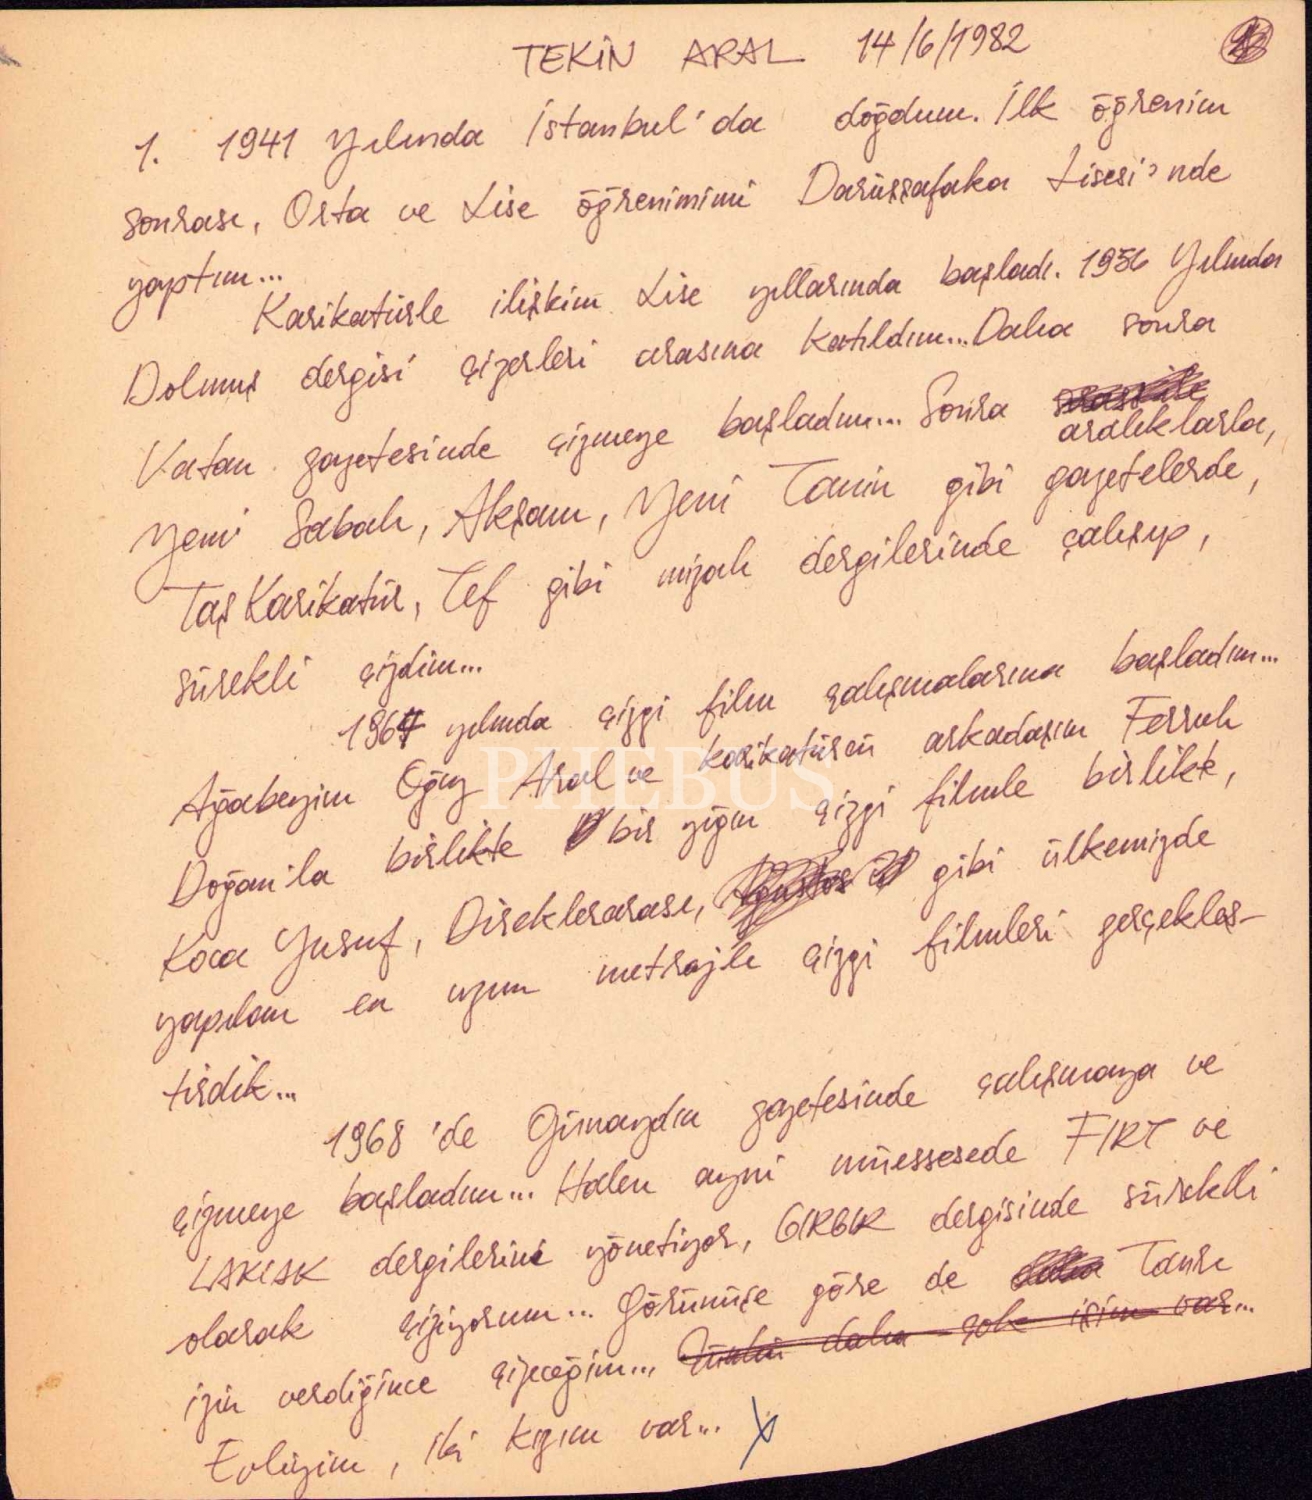 TEKİN ARAL 14/6/1982
1. 1941 Yılında İstanbul'da doğdum. İlk öğrenim
sonrası, Orta ve Lise öğrenimimi Darüşşafaka Lisesi'nde
yaptım...
Karikatürle ilişkim Lise yıllarında başladı. 1956 Yılında
Dolmuş dergisi çizerleri arasına katıldım... Daha sonra
Vatan gazetesinde çizmeye başladım... Sonra
aralıklarla,
Yeni Sabah, Akşam, Yeni Tanin gibi gazetelerde,
Taş Karikatür, Tef gibi mizah dergilerinde çalışıp,
sürekli çizdim...
1964 yılında çizgi film çalışmalarına başladım...
Ağabeyim Oğuz Aral ve karikatürcü arkadaşım Ferruh
PHEBUS
Doğan'la birlikte bir yığın çizgi filmle birlikte,
Koca Yusuf, Direklerarası, gibi ülkemizde
yapılan en uzun metrajlı çizgi filmleri gerçekleş-
tirdik...
1968'de Günaydın gazetesinde çalışmaya ve
çizmeye başladım... Halen ayni müessesede FIRT ve
LAKLAK dergilerini yönetiyor, GIRGIR dergisinde sürekli
olarak çiziyorum... Görünüşe göre de Tanrı
izin verdiğince çizeceğim... Çünkü daha çok işim var...
Evliyim, iki kızım var...